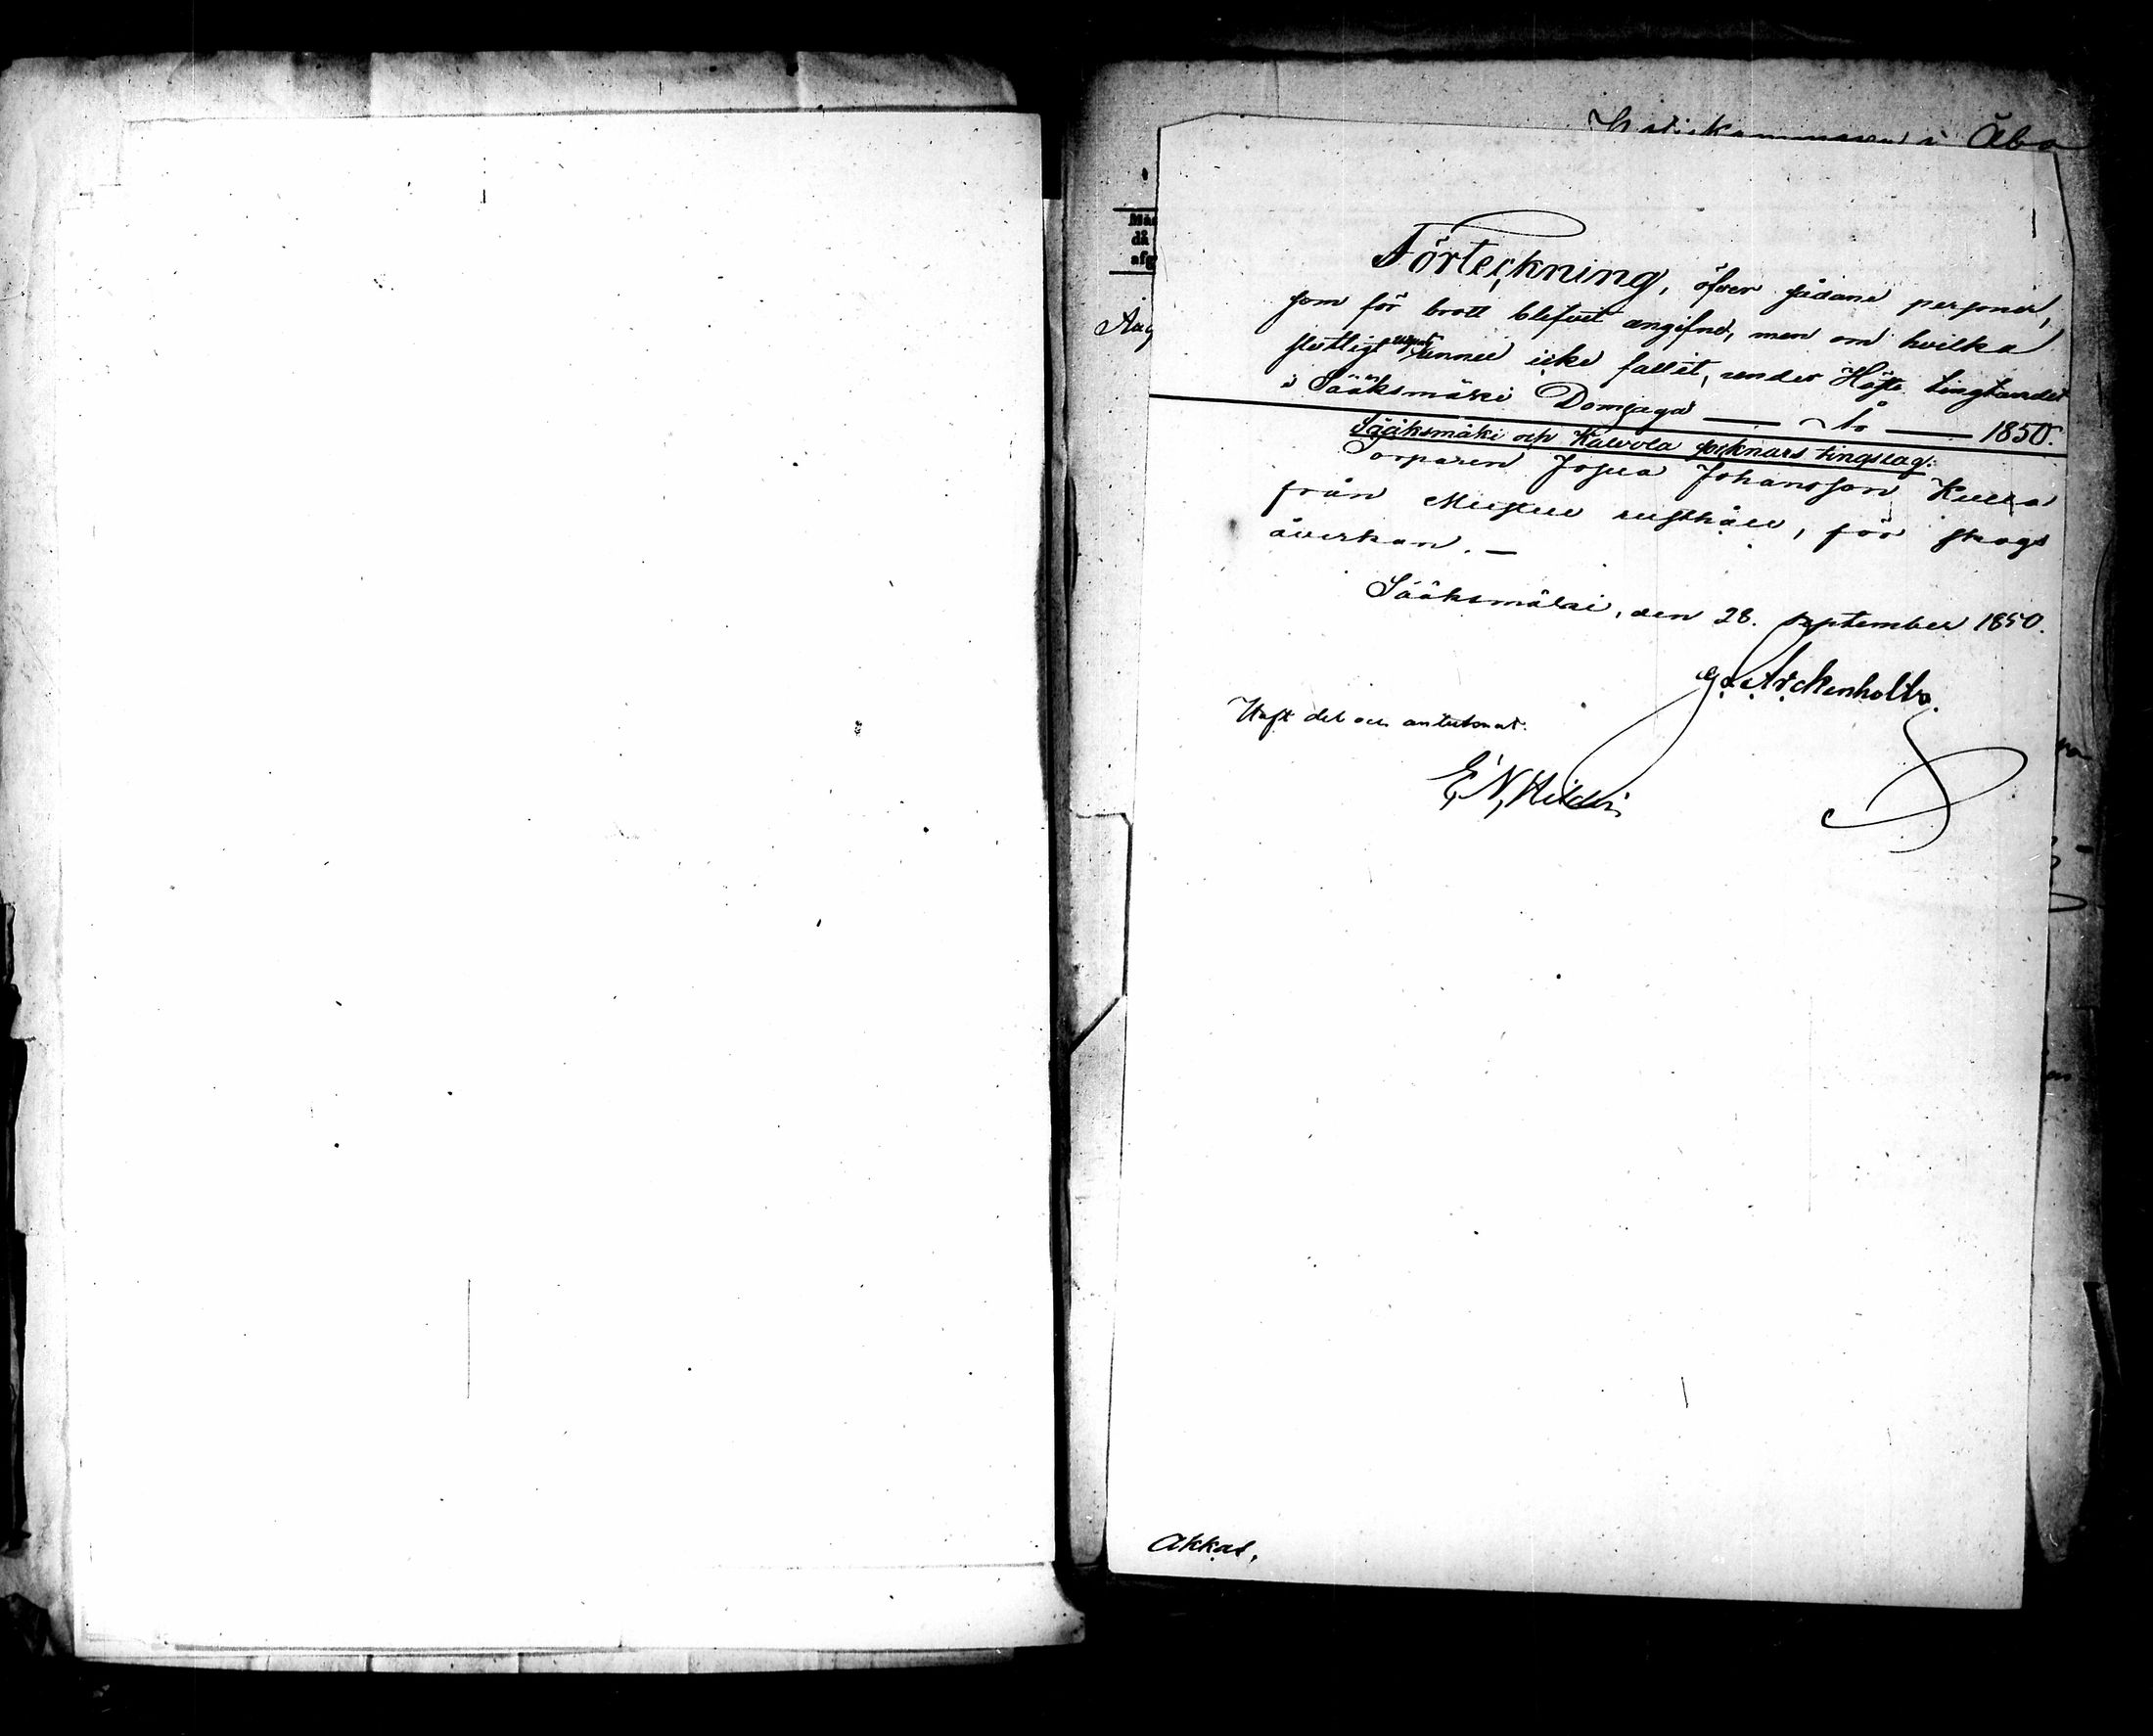 i Åbo
Mån
då
afg
Aug
Förteckning, öfver sådane personer,
som för brott blifvit angifne, men om hvilka
slutligt utslag ännu icke fallit, under Höste tingtandet
i Sääksmäki Domsaga — år — 1850.
Sääksmäki och Kalvola socknars tingslag.
Torparen Josua Johansson Kulla
från Muslu rusthåll, för skogs
åverkan. —
Sääksmäki, den 28. september 1850.
G. A. Archenholtz.
E. N. Hildén
Akkas.